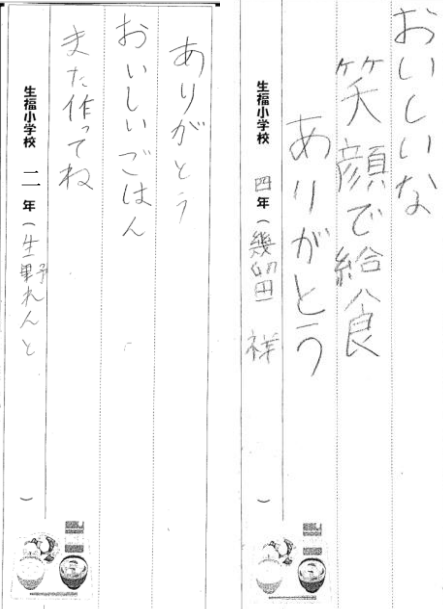 おいしいな
笑顔で給食
ありがとう
生福小学校 四年（幾留 祥）
ありがとう
おいしいごはん
また作ってね
生福小学校 二年（生野れんと）